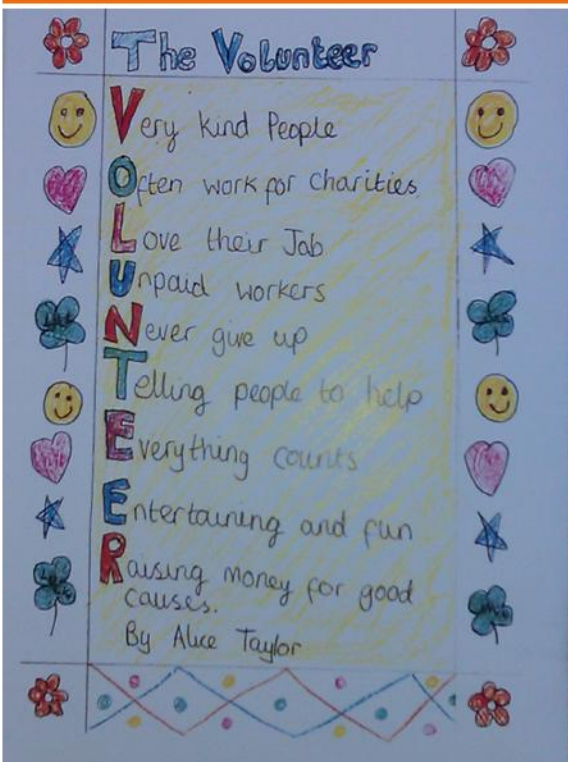 The Volunteer
Very Kind People
Often work for Charities
Love their Job
Unpaid workers
Never give up
Telling people to help
Everything counts
Entertaining and fun
Raising money for good
causes.
By Alice Taylor